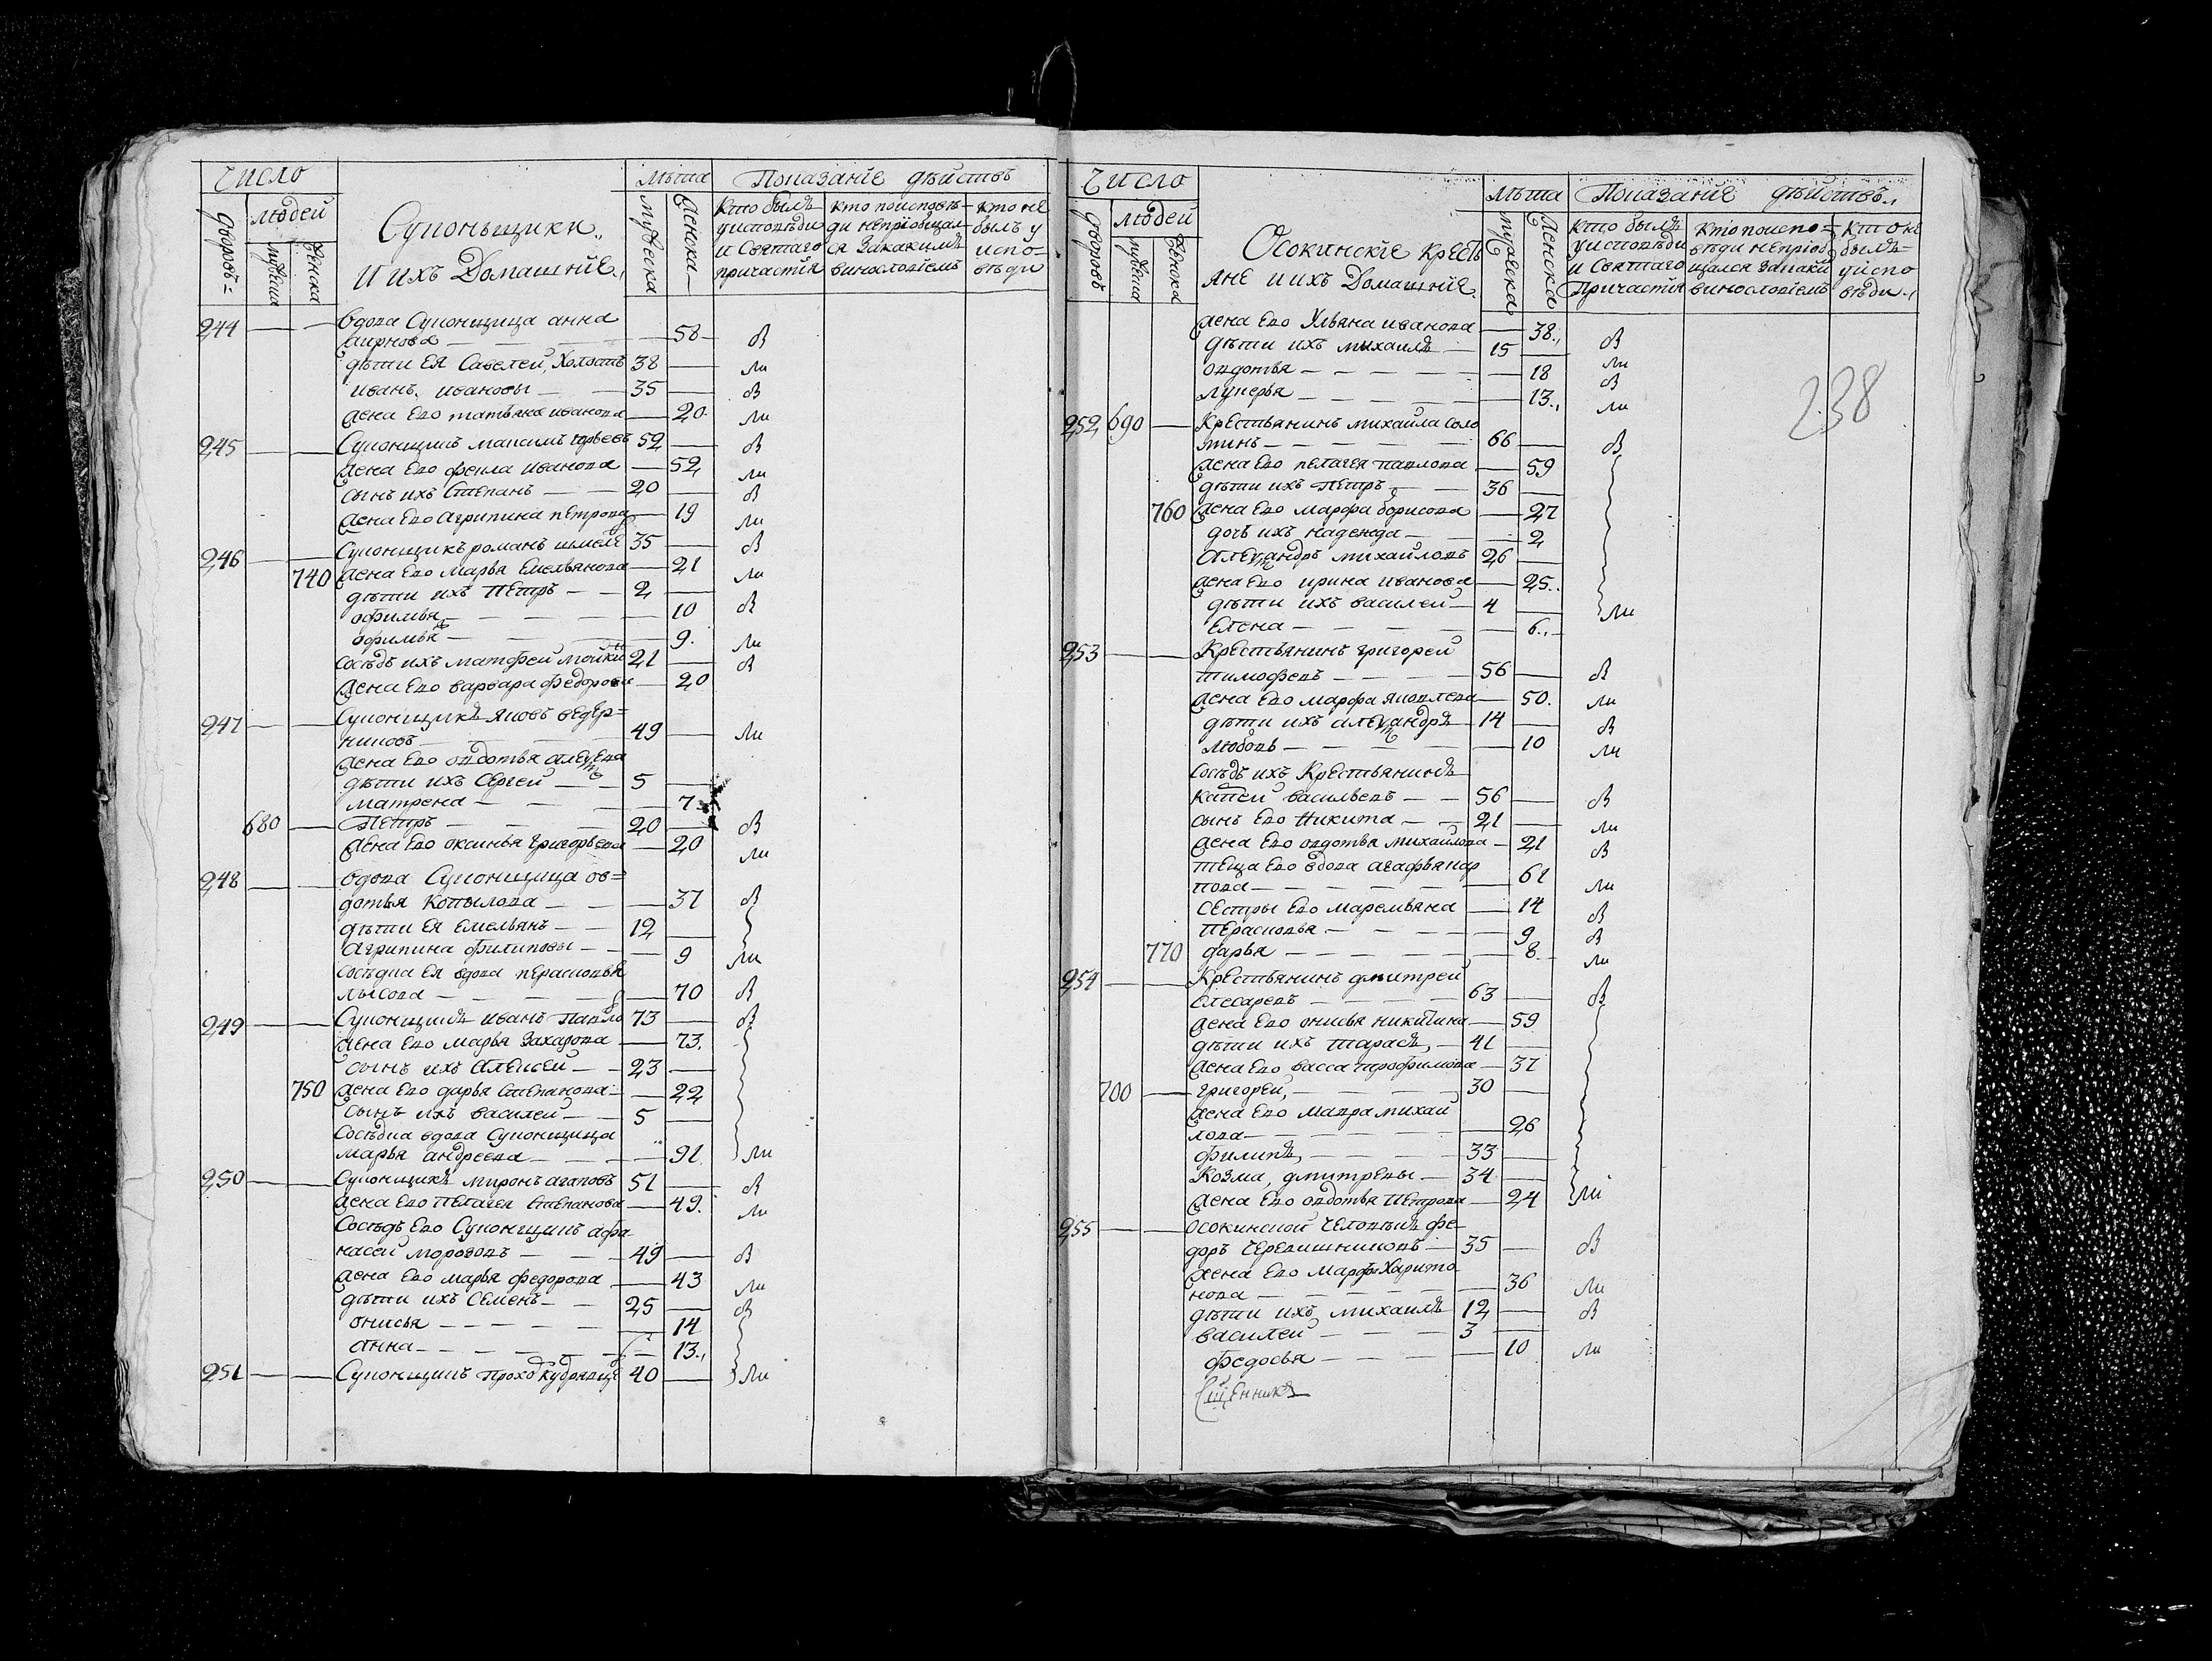 Число
людей
дворовъ
мужеска
женска
Суконьщики
И ихъ Домашние
лѣта
мужеска
женска
Показание дѣйствъ
кто былъ у исповѣди и Святаго причастия
кто по исповѣди не приобщался за какимъ винословиемъ
кто не былъ у исповѣди
244 вдова Суконщица анна
58 в
дѣти Ея Савелей, Холостъ 38 ли
иванъ, ивановы 35 в
жена Его татьяна иванова 20 ли
245 Суконщикъ максимъ юрьевъ 52 в
жена Его фекла иванова 52 ли
сынъ ихъ Степанъ 20 в
жена Его Агрипина петрова 19 ли
246 Суконщикъ романъ шмелё 35 в
740 жена Его Марья Емельянова 21 ли
дѣти ихъ Петръ 2
офимья 10 в
офимья 9 ли
сосѣдъ ихъ матфей мойки 21 в
жена Его варвара федорова 20
247 Суконщикъ яковъ ведер=
никовъ 49 ли
жена Его овдотья
дѣти ихъ Сергей 5
матрена 7
680 Петръ 20 в
жена Его оксинья григорьева 20 ли
248 вдова Суконщица ов=
дотья Копылова 37 в
дѣти Ея Емельянъ 12
Агрипина филиповы 9 ли
сосѣдка Ея вдова перасковья
лысова 70 в
249 Суконщикъ иванъ Павло 73 в
жена Его Марья Захарова 73
сынъ ихъ Алексей 23
750 жена Его дарья Степанова 22
сынъ ихъ василей 5
сосѣдка вдова Суконщица
марья андреева 91 ли
250 Суконщикъ миронъ агаповъ 51 в
жена Его Пелагея Степанова 49 ли
Сосѣдъ Его Суконщикъ афа
насей морозовъ 49 в
жена Его марья федорова 43 ли
дѣти ихъ Семенъ 25 в
онисья 14
анна 13
251 Суконщикъ прохо 40 ли
Число
людей
дворовъ
мужеска
женска
Осокинские кресть
яне и ихъ Домашние
лѣта
мужеска
женска
Показание дѣйствъ
кто былъ у исповѣди и Святаго Причастия
кто по исповѣди не приобщался за каки винословиемъ
кто не былъ у исповѣди
238
жена Его Ульяна иванова 38 в
дѣти ихъ михаилъ 15 ли
овдотья 18 в
лукерья 13 ли
252 690 Крестьянинъ михаила соло
66 в
жена Его пелагея павлова 59
дѣти ихъ Петръ 36
760 жена Его марфа борисова 27
дочь ихъ надежда 2
Александръ михайловъ 26
жена Его ирина иванова 25
дѣти ихъ василей 4 ли
Елена 6
253 Крестьянинъ григорей
тимофеевъ 56 в
жена Его марфа яковлева 50 ли
дѣти ихъ александръ 14 в
любовь 10 ли
сосѣдъ ихъ Крестьянинъ
васильевъ 56 в
сынъ Его Никита 21 ли
жена Его овдотья михайлова 21 в
теща Его вдова агафья кар
пова 61 ли
Сестры Его маремьяна 14 в
Перасковья 9 в
770 дарья 8 ли
254 Крестьянинъ дмитрей
Слесаревъ 63 в
жена Его онисья никитина 59
дѣти ихъ тарасъ, 41
жена Его васса трофимова 37
700 григорей, 30
жена Его мавра михай
лова 26
филипъ, 33
Козма, дмитревы 34
жена Его овдотья Петрова 24 ли
255 осокинской человѣкъ фе
доръ 35 в
жена Его Марфа Харито
нова 36 ли
дѣти ихъ михаилъ 12 в
василей 3
федосья 10 ли